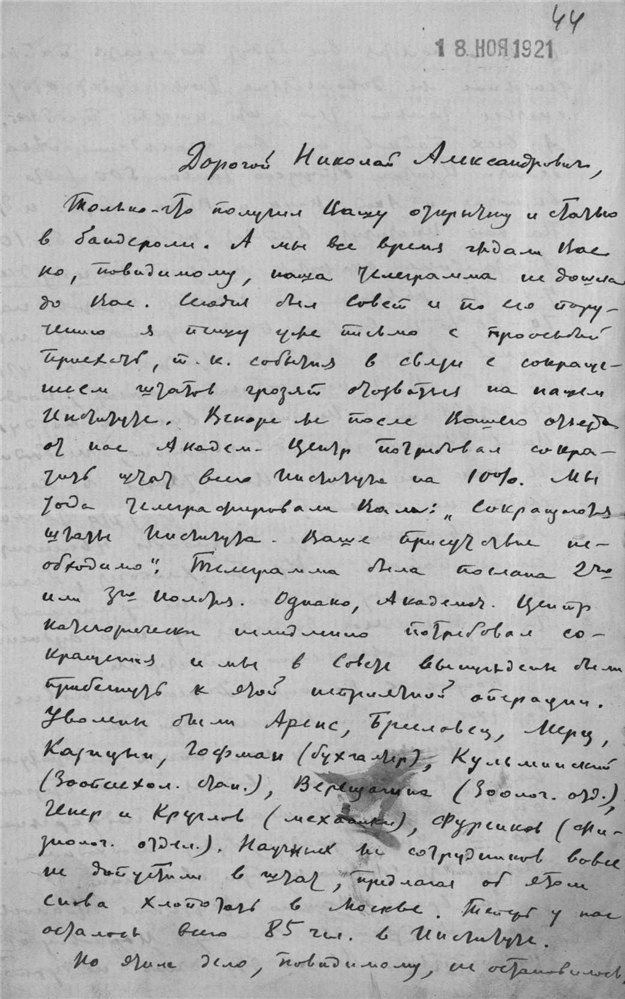 44
18 НОЯ 1921
Дорогой Николай Александрович,
Только-что получил Вашу открытку и статью
в бандероли. А мы все время ждали Вас
но, повидимому, наша телеграмма не дошла
до Вас. Сегодня был Совет и по его пору-
чению я пишу уже письмо с просьбой
приехать, т.к. события в связи с сокраще-
нием штатов грозят отозваться на нашем
Институте. Вскоре же после Вашего отъезда
от нас Академ. Центр потребовал сокра-
тить штат всего Института на 10%. Мы
тогда телеграфировали Вам: „Сокращаются
штаты Института. Ваше присутствие не-
обходимо“. Телеграмма была послана 2го
или 3го Ноября. Однако, Академич. Центр
категорически немедленно потребовал со-
кращения и мы в Совете вынуждены были
прибегнуть к этой неприятной операции.
Уволены были Аренс, Бреславец, Мерц,
Карицын, Гофман (бухгалтер), Кульминский
(Зоопсихол. стан.), Верещагина (Зоолог. отд.),
Генер и Круглов (механики), Фурсиков (Фи-
зиолог. отдел.). Научных же сотрудников вовсе
не допустили в штат, предлагая об этом
снова хлопотать в Москве. Теперь у нас
осталось всего 85 чел. в Институте.
Но этим дело, повидимому, не остановилось,